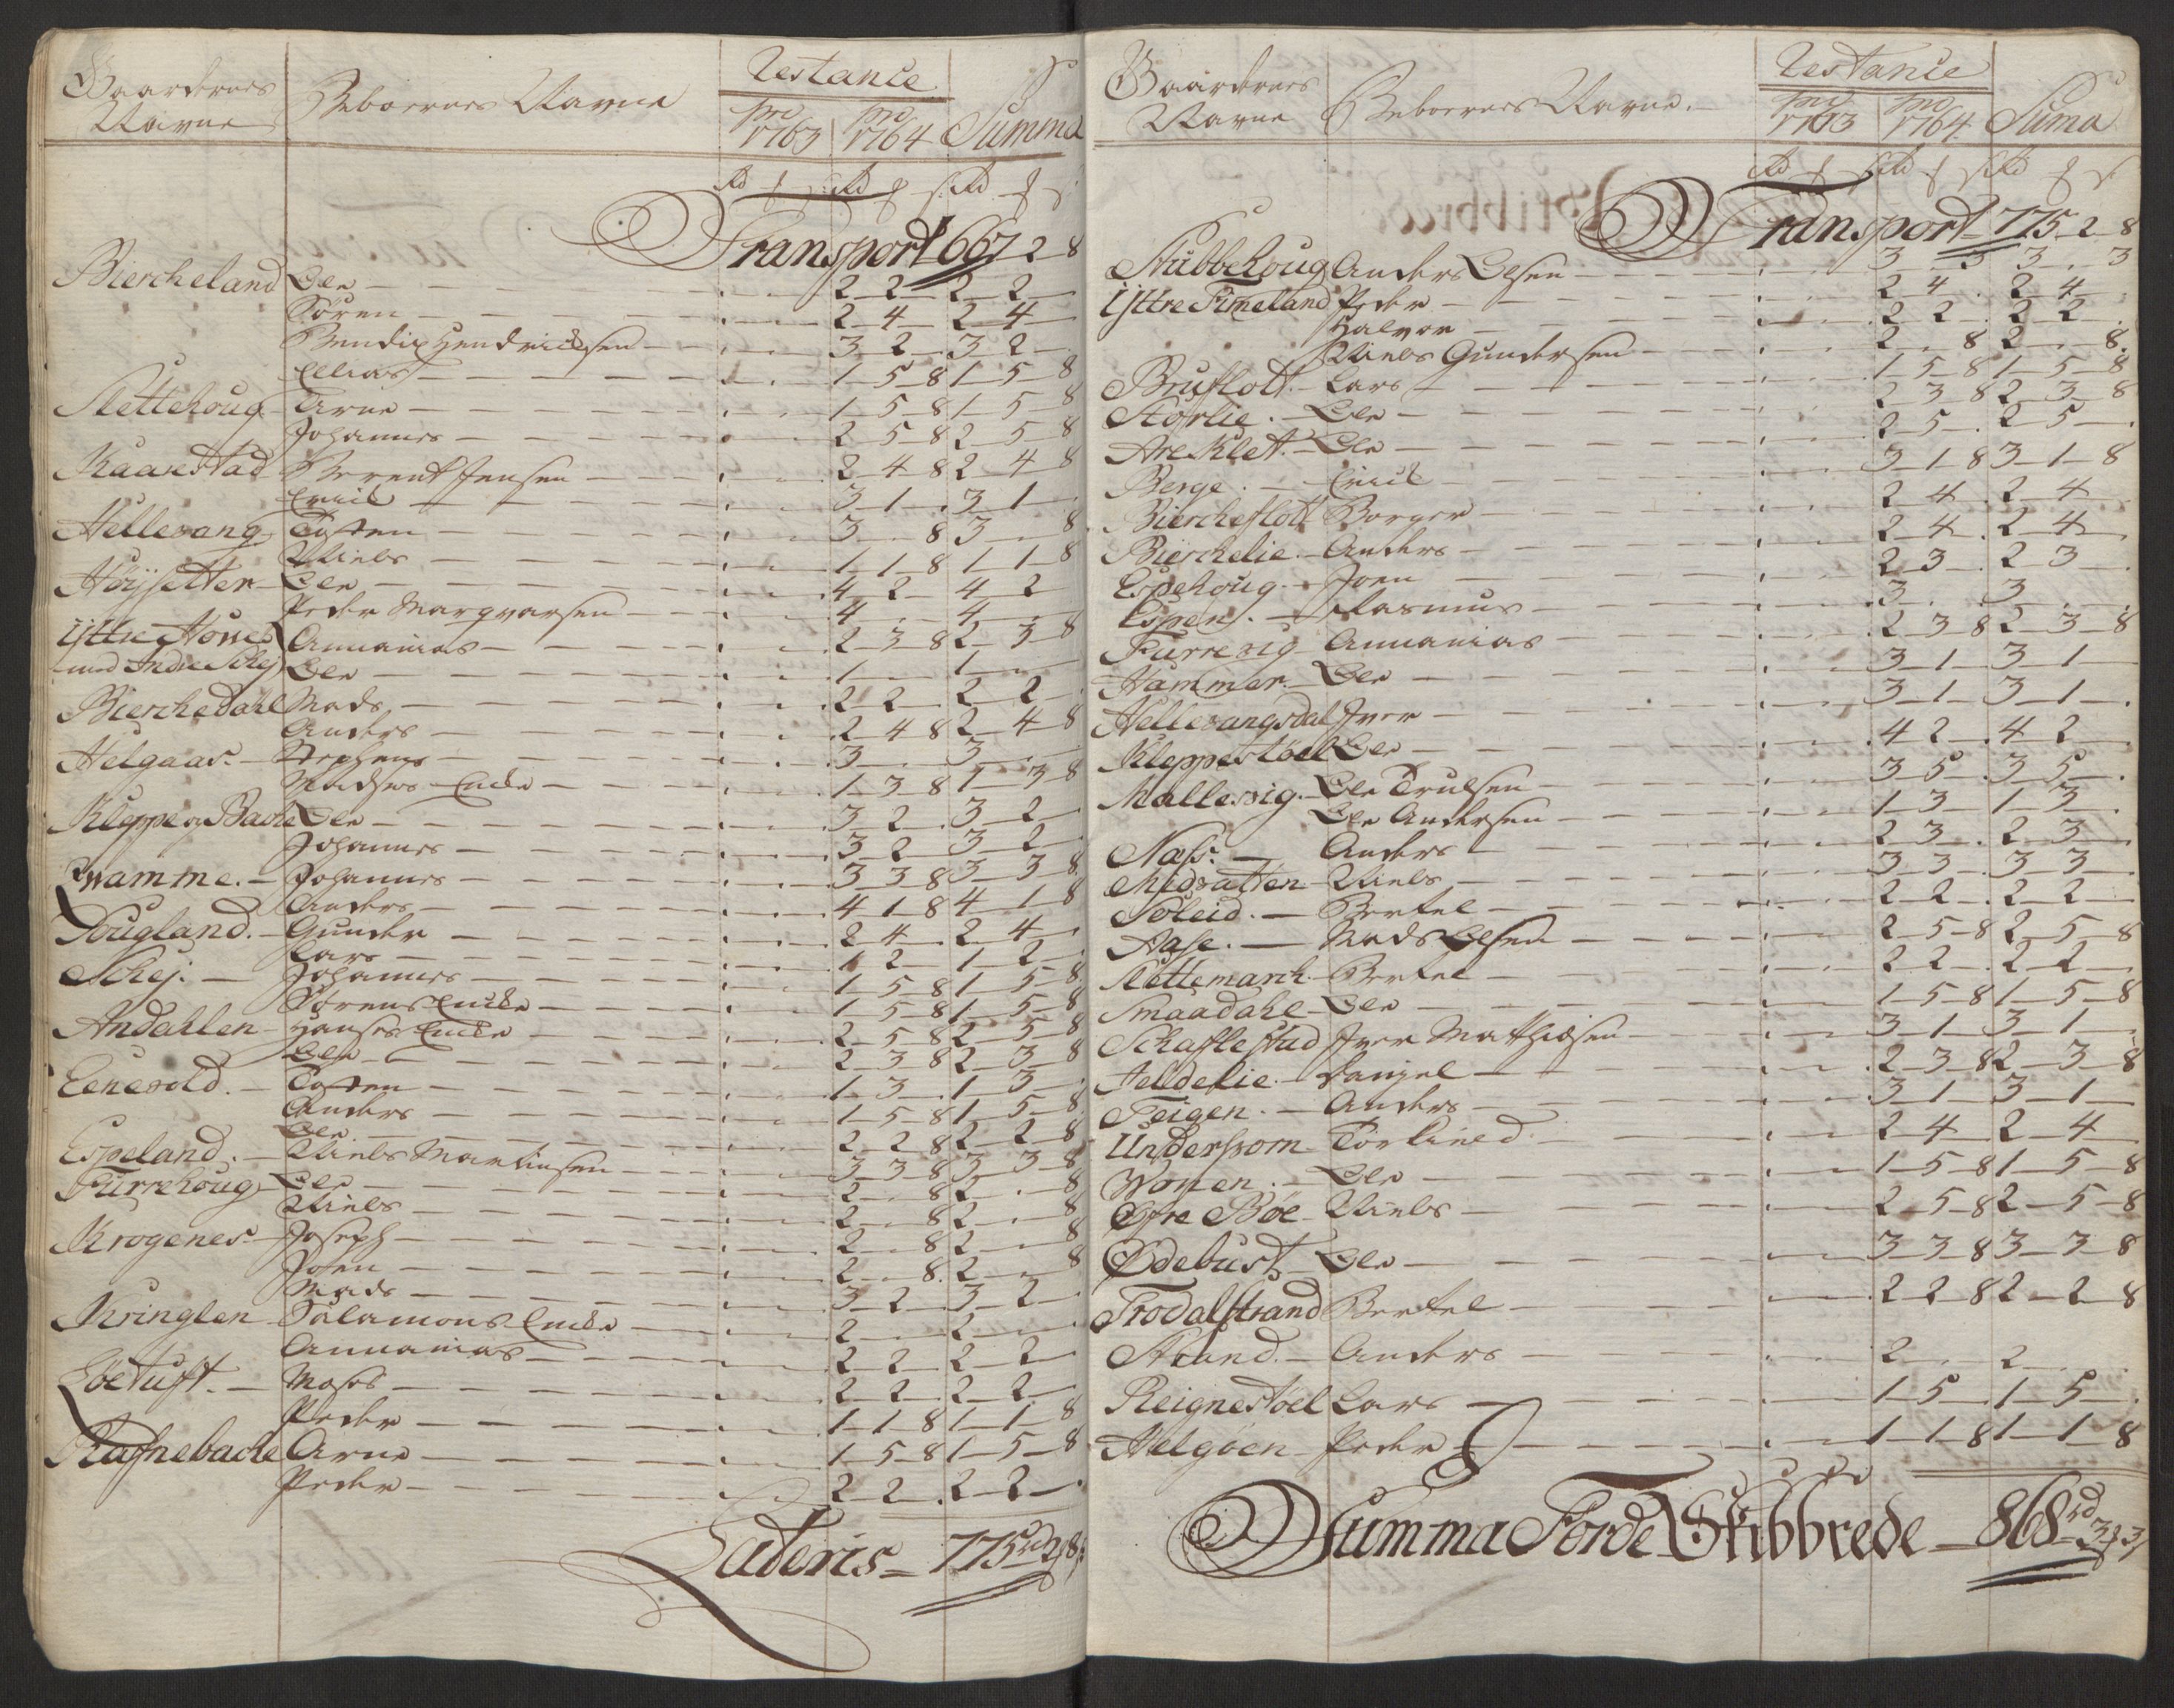 Gaardernes Navne Beboernes Navne Restance pro 1763 pro 1764 Summa
Rd ʄ s Rd ʄ s Rd ʄ s
Transport 667 2 8
Biercheland Ole 2 2 2 2
Søren 2 4 2 4
Bendix Hendrichsen 3 2 3 2
Ellias 1 5 8 1 5 8
Slettehoug Arne 1 5 8 1 5 8
Johannes 2 5 8 2 5 8
Kaarestad Berent Jensen 2 4 8 2 4 8
Erich 3 1 3 1
Hellevang Tosten 3 8 3 8
Niels 1 1 8 1 1 8
Høysetter Ole 4 2 4 2
Peder Marqvarsen 4 4
Yttre Howe Annanias 2 3 8 2 3 8
med Indre Schej Ole 1 1
Bierchedahl Mads 2 2 2 2
Anders 2 4 8 2 4 8
Helgaas Stephens 3 3
Madses Encke 1 3 8 1 3 8
Kleppe og Bache Ole 3 2 3 2
Johannes 3 2 3 2
Qvamme Johannes 3 3 8 3 3 8
Anders 4 1 8 4 1 8
Hougland Gunder 2 4 2 4
Lars 1 2 1 2
Schej Johannes 1 5 8 1 5 8
Sørens Encke 1 5 8 1 5 8
Andahlen Hanses Encke 2 5 8 2 5 8
Ole 2 3 8 2 3 8
Eenevold Tosten 1 3 1 3
Anders 1 5 8 1 5 8
Ole 2 2 8 2 2 8
Espeland Niels Martinsen 3 3 8 3 3 8
Furrehoug Ole 2 8 2 8
Niels 2 8 2 8
Krogenes Joseph 2 8 2 8
Joen 2 8 2 8
Mads 3 2 3 2
Kringlen Salamons Encke 2 2
Annanias 2 2 2 2
Løetuft Moses 2 2 2 2
Peder 1 1 8 1 1 8
Rafnebache Arne 1 5 8 1 5 8
Peder 2 2 2 2
Lateris 775 rd 2 ʄ 8
Gaardernes Navne Beboernes Navne Restance pro 1763 pro 1764 Suma
Rd ʄ s Rd ʄ s Rd ʄ s
Transport 775 2 8
Stubbehoug Anders Olsen 3 3 3 3
Yttre Timeland Peder 2 4 2 4
Halvor 2 2 2 2
Niels Gundersen 2 8 2 8
Bruflott Lars 1 5 8 1 5 8
Storlie Ole 2 3 8 2 3 8
Are Klet Ole 2 5 2 5
Berge Erich 3 1 8 3 1 8
Biercheflott Borger 2 4 2 4
Bierchelie Anders 2 4 2 4
Espehoug Joen 2 3 2 3
Espen Rasmus 3 3
Furrevig Annanias 2 3 8 2 3 8
Hammer Ole 3 1 3 1
Hellevangsdal Iver 3 1 3 1
Kleppestøel Ole 4 2 4 2
Mallevig Ole Trulsen 3 5 3 5
Ole Andersen 1 3 1 3
Næss Anders 2 3 2 3
Midvatten Niels 3 3 3 3
Soleid Bertel 2 2 2 2
Aase Mads Olsen 2 5 8 2 5 8
Slettemarch Bertel 2 2 2 2
Smaadahl Ole 1 5 8 1 5 8
Schaflestad Iver Mathisen 3 1 3 1
Jeldelie Daniel 2 3 8 2 3 8
Teigen Anders 3 1 3 1
Undersom Torkined 2 4 2 4
Wonen Ole 1 5 8 1 5 8
Øfre Bøe Niels 2 5 8 2 5 8
Ødebust Ole 3 3 8 3 3 8
Trodalstrand Bertel 2 2 8 2 2 8
Strand Anders 2 2
Reignestøel Lars 1 5 1 5
Helgøen Peder 1 1 8 1 1 8
Summa Førde Skibbrede 868 rd 3 ʄ 3